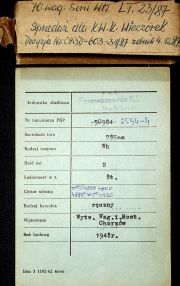 10 wag. Serii Wh LT. 23/87
Sprzedaż dla K.W.K. Wieczorek
Decyzja Nr CM3D-603-31/87 z dnia
Jednostka służbowa
Parowozownia
Nr taborowy PKP 50984 2594-4
Szerokość toru 785mm
Rodzaj wagonu Wh
Ilość osi 2
Ładowność w t. 8t.
Ciężar własny
Rodzaj hamulca ręczny
Wytwórnia Wytw. Wag. i Most.
Chorzów
Rok budowy 1948r.